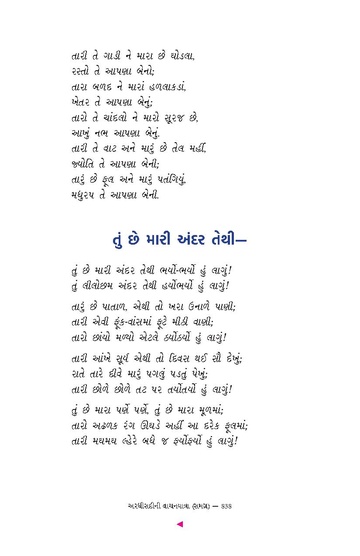 તારી તે ગાડી ને મારા છે ઘોડલા,
રસ્તો તે આપણા બેનો;
તારા બળદ ને મારાં હળલાકડાં,
ખેતર તે આપણા બેનું;
તારો તે ચાંદલો ને મારો સૂરજ છે,
આખું નભ આપણા બેનું,
તારી તે વાટ અને મારું છે તેલ મહીં,
જ્યોતિ તે આપણા બેની;
તારું છે ફૂલ અને મારું પતંગિયું,
મધુરપ તે આપણા બેની.
તું છે મારી અંદર તેથી—
તું છે મારી અંદર તેથી ભર્યો-ભર્યો હું લાગું!
તું લીલોછમ અંદર તેથી હર્યોભર્યો હું લાગું!
તારું છે પાતાળ, એથી તો ખરા ઉનાળે પાણી;
તારી એવી ફૂંક-વાંસમાં ફૂટે મીઠી વાણી;
તારો છાંયો મળ્યો એટલે ઠર્યોઠર્યો હું લાગું!
તારી આંખે સૂર્ય એથી તો દિવસ થઈ સૌ દેખું;
રાતે તારે દીવે મારું પગલું પડતું પેખું;
તારી છોળે છોળે તટ પર તર્યોતર્યો હું લાગું!
તું છે મારા પર્ણે પર્ણે, તું છે મારા મૂળમાં;
તારો અઢળક રંગ ઊઘડે અહીં આ દરેક ફૂલમાં;
તારી મઘમઘ લ્હેરે બધે જ ફર્યોફર્યો હું લાગું!
અરધીસદીની વાચનયાત્રા (સમગ્ર) — 838